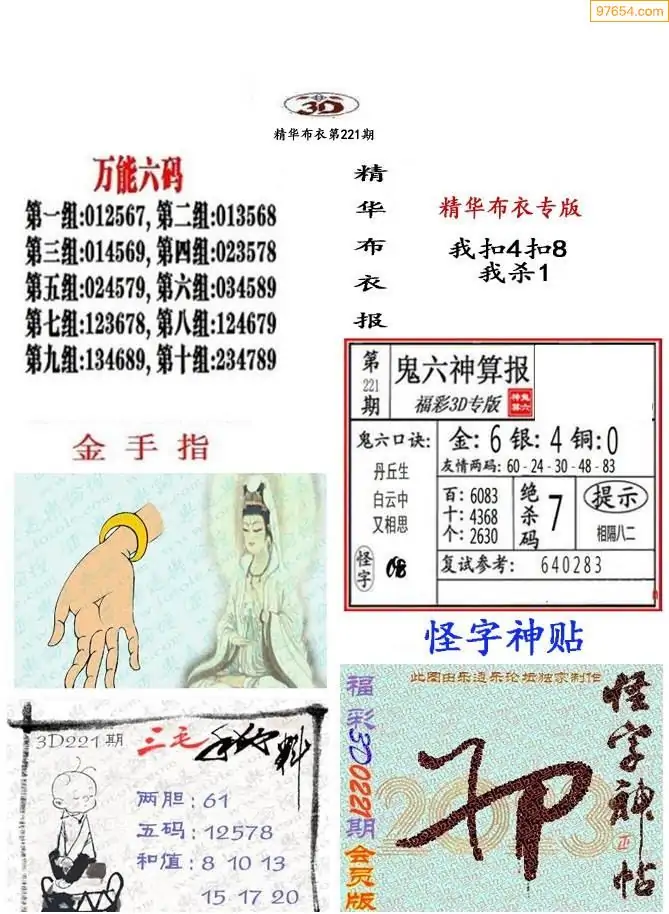 97654.com
3D
精华布衣第221期
万能六码
第一组:012567, 第二组:013568
第三组:014569, 第四组:023578
第五组:024579, 第六组:034589
第七组:123678, 第八组:124679
第九组:134689, 第十组:234789
精华布衣报
精华布衣专版
我扣4扣8
我杀1
金手指
第221期
鬼六神算报
福彩3D专版
鬼六神算
鬼六口诀:
丹丘生
白云中
又相思
金:6 银:4 铜:0
友情两码: 60-24-30-48-83
百: 6083
十: 4368
个: 2630
绝杀码
7
提示
相隔八二
怪字
复试参考: 640283
怪字神贴
3D221期
三毛
料
两胆: 61
五码: 12578
和值: 8 10 13
15 17 20
此图由乐造乐论坛独家制作
福彩3D0221期会员版
怪字神帖
2023